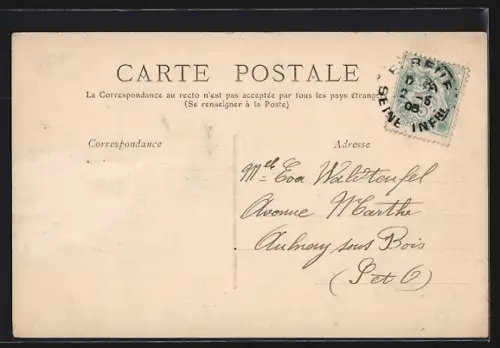 CARTE POSTALE
La Correspondance au recto n'est pas acceptée par tous les pays étrang
(Se renseigner à la Poste)
Correspondance
Adresse
Melle Eva Waldteufel
Avenue Marthe
Aulnay sous Bois
(S et O)
SEINE INFRE